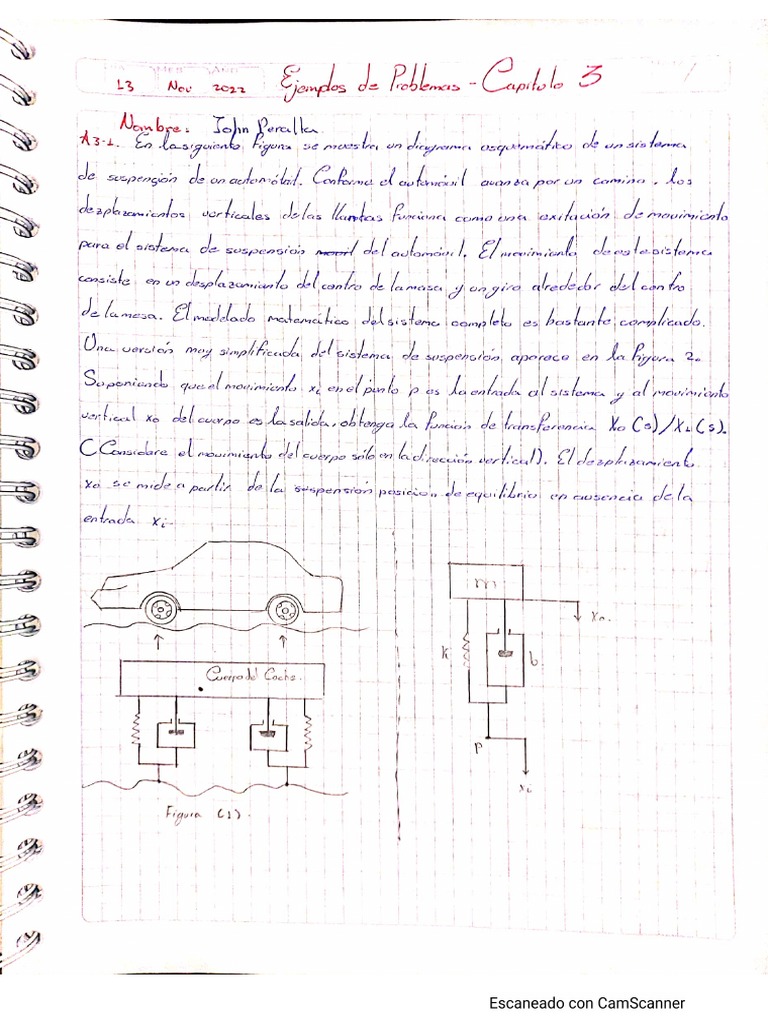 13 Nov 2022 Ejemplos de Problemas - Capitulo 3
Nombre: John Peralta
A3-1. En la siguiente figura se muestra un diagrama esquemático de un sistema
de suspensión de un automóvil. Conforme el automóvil avanza por un camino, los
desplazamientos verticales de las llantas funciona como una exitación de movimiento
para el sistema de suspensión del automóvil. El movimiento de este sistema
consiste en un desplazamiento del centro de la masa y un giro alrededor del centro
de la masa. El modelado matemático del sistema completo es bastante complicado.
Una versión muy simplificada del sistema de suspensión aparece en la figura 2.
Suponiendo que el movimiento xi en el punto p es la entrada al sistema y al movimiento
vertical xo del cuerpo es la salida, obtenga la función de transferencia Xo(s)/Xi(s).
(Considere el movimiento del cuerpo sólo en la dirección vertical). El desplazamiento
xo se mide a partir de la suspensión posición de equilibrio en ausencia de la
entrada xi.
m
xo
k
b
Cuerpo del Coche.
p
xi
Figura (1).
Escaneado con CamScanner